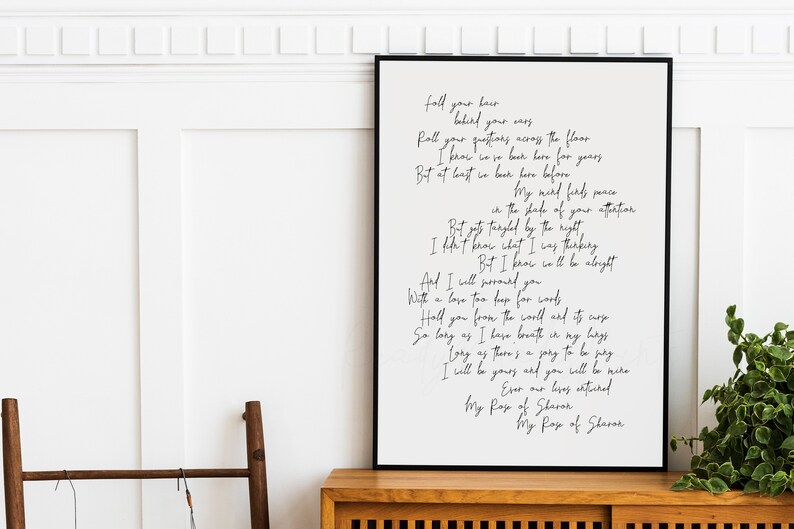 Fold your hair
behind your ears
Roll your questions across the floor
I know we've been here for years
But at least we been here before
My mind finds peace
in the shade of your attention
But gets tangled by the night
I didn't know what I was thinking
But I know we'll be alright
And I will surround you
With a love too deep for words
Hold you from the world and its curse
So long as I have breath in my lungs
Long as there's a song to be sung
I will be yours and you will be mine
Ever our lives entwined
My Rose of Sharon
My Rose of Sharon